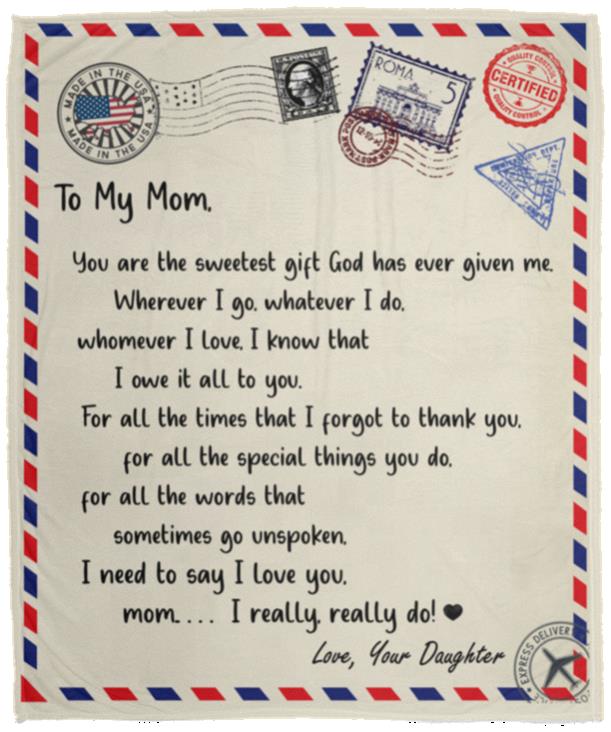 MADE IN THE USA
MADE IN THE USA
U.S. POSTAGE
ROMA
5
12-10-
QUALITY CONTROL
CERTIFIED
QUALITY CONTROL
To My Mom,
You are the sweetest gift God has ever given me.
Wherever I go, whatever I do,
whomever I love, I know that
I owe it all to you.
For all the times that I forgot to thank you,
for all the special things you do,
for all the words that
sometimes go unspoken,
I need to say I love you,
mom.... I really, really do!
Love, Your Daughter
EXPRESS DELIVERY